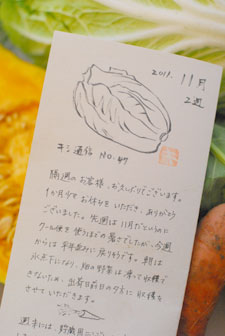 2011. 11月
2週
キミ通信 NO.47
隔週のお客様、お久しぶりでございます。
1か月分でお休みをいただき、ありがとう
ございました。先週は11月だというのに
クール便を使うほどの暑さでしたが、今週
からは平年並みに戻りそうです。朝は
氷点下になり、畑の野菜は凍って収穫で
きないため、出荷日前日の夕方に収穫を
させていただきます。
週末には、貯蔵用